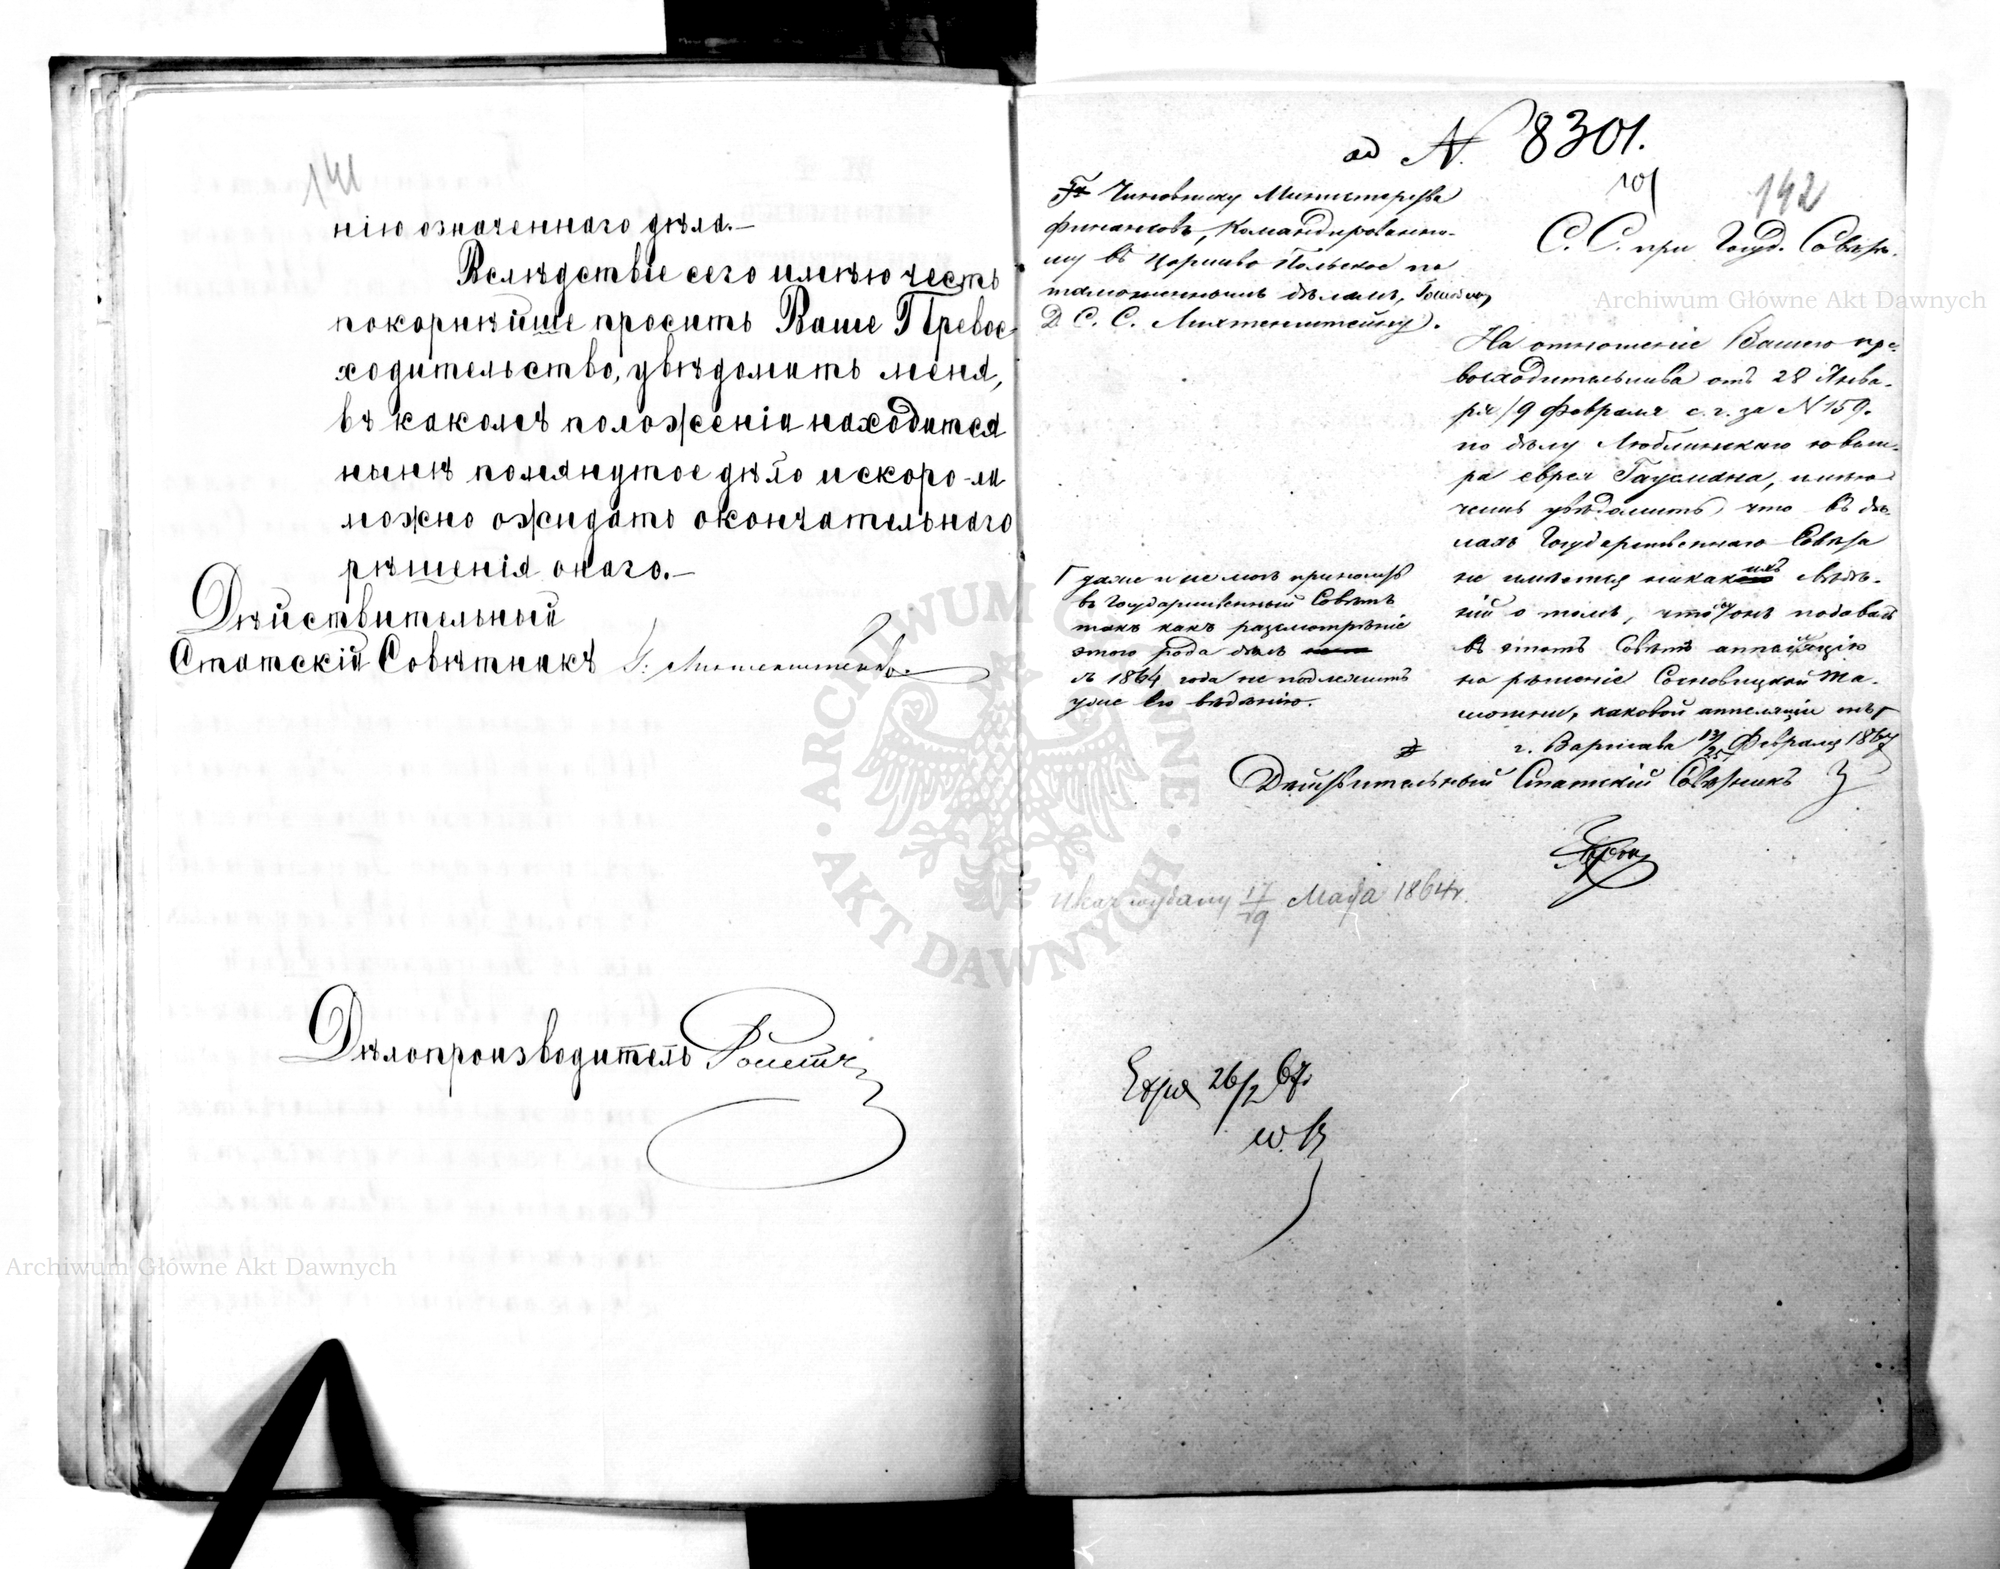 141
нію означеннаго дѣла.—
Вслѣдствіе сего имѣю честь
покорнѣйше просить Ваше Превос-
ходительство, увѣдомить меня,
въ какомъ положеніи находится
нынѣ помянутое дѣло и скоро-ли
можно ожидать окончательнаго
рѣшенія онаго.—
Дѣйствительный
Статскій Совѣтникъ
Дѣлопроизводитель
ad N. 8301.
142
Чиновнику Министерства
Финансовъ, Командированно-
му въ Царство Польское по
таможеннымъ дѣламъ, Господину
Д. С. С. Лихтенштейну.
С. С. при Госуд. Совѣтѣ.
На отношеніе Вашего пре-
восходительства отъ 28 Янва-
ря/9 Февраля с. г. за N 159.
по дѣлу Люблинскаго
еврея Гаусмана, имѣю
честь увѣдомить, что въ дѣ-
лахъ Государственнаго Совѣта
не имѣется никакихъ свѣдѣ-
ній о томъ, чтобы онъ подавалъ
въ этотъ Совѣтъ аппеляцію
на рѣшеніе Сосновицкой Та-
можни, каковой аппеляціи онъ
даже и не могъ приносить
въ Государственный Совѣтъ
такъ какъ разсмотрѣніе
этого рода дѣлъ
съ 1864 года не подлежитъ
уже его вѣдѣнію.
г. Варшава 13/25 Февраля 1867
Дѣйствительный Статскій Совѣтникъ
17/29 Мая 1864 г.
26/2 67.
Archiwum Główne Akt Dawnych
Archiwum Główne Akt Dawnych
ARCHIWUM GŁÓWNE
AKT DAWNYCH